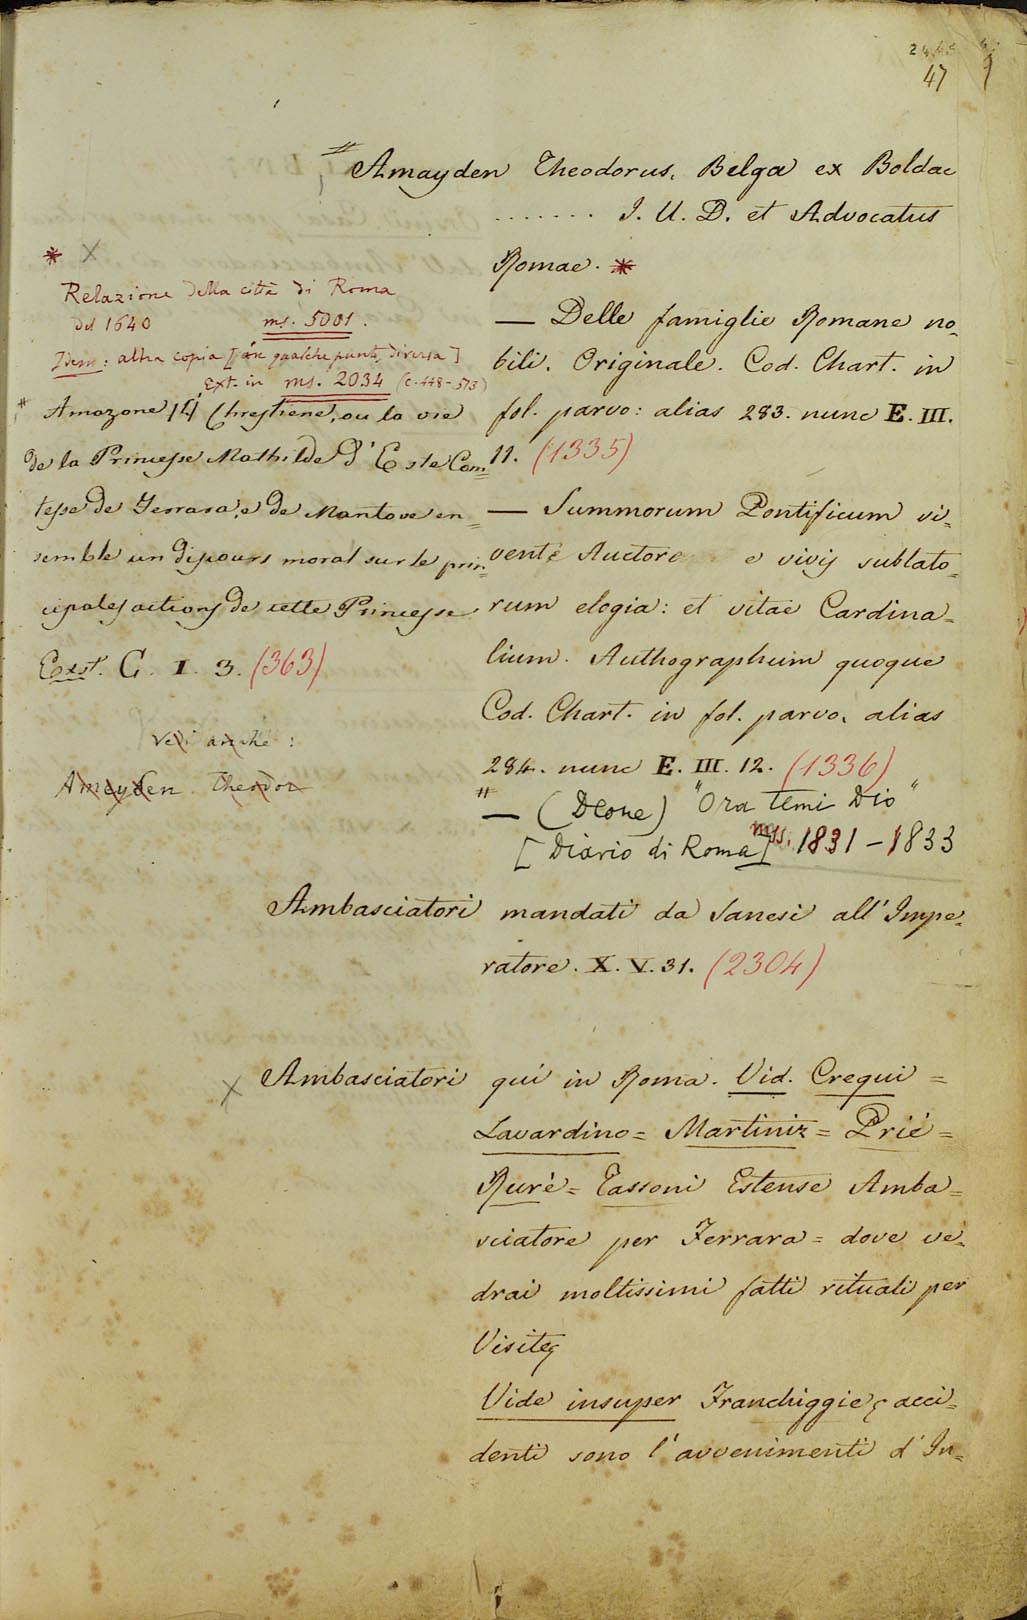 47
Amayden Theodorus, Belga ex Boldac
....... J. U. D. et Advocatus
Romae. *
— Delle famiglie Romane no=
bili. Originale. Cod. Chart. in
fol. parvo: alias 283. nunc E. III.
11. (1335)
— Summorum Pontificum vi=
vente Auctore e vivis sublato=
rum elogia: et vitae Cardina=
lium. Authographum quoque
Cod. Chart. in fol. parvo, alias
284. nunc E. III. 12. (1336)
# — (Deone) "Ora temi Dio"
[Diario di Roma] mss. 1831-1833
* X
Relazione della città di Roma
del 1640 ms. 5001.
Idem: altra copia [in qualche punto diversa]
Ext. in ms. 2034 (c. 448-573)
# Amazone Chrestiene, ou la vie
de la Princesse Mathilde d'Este Com=
tesse de Ferrara, e de Mantove en=
semble un discours moral sur le prin=
cipales actions de cette Princesse
Exst. G. I. 3. (363)
Vedi anche:
Ameyden Theodor
Ambasciatori mandati da Sanesi all'Impe=
ratore. X. V. 31. (2304)
X Ambasciatori qui in Roma. Vid. Crequi =
Lavardino = Martiniz = Prié =
Rurè = Tassoni Estense Amba=
sciatore per Ferrara = dove ve=
drai moltissimi fatti rituali per
Visite
Vide insuper Franchiggie, acci=
denti sono l'avvenimenti d'In=